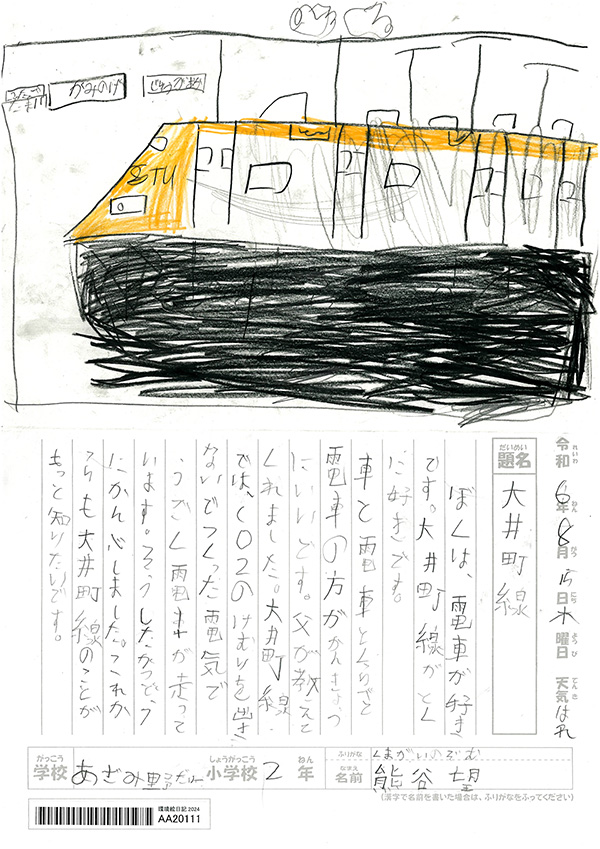 かみのげ
令和6年8月15日木曜日 天気はれ
れいわ ねん がつ にち ようび てんき
だいめい
題名
大井町線
ぼくは、電車が好き
です。大井町線がとく
に好きです。
車と電車とくらべると
電車の方がかんきょう
にいいです。父が教えて
くれました。大井町線
では、CO2のけむりを出さ
ないでつくった電気で
うごく電車が走って
います。そうしたかつどう
にかん心しました。これか
らも大井町線のことが
もっと知りたいです。
がっこう しょうがっこう ねん
学校 あざみ野 小学校 2年
ふりがな くまがいのぞむ
なまえ
名前 熊谷 望
(漢字で名前を書いた場合は、ふりがなをふってください)
環境絵日記2024
AA20111